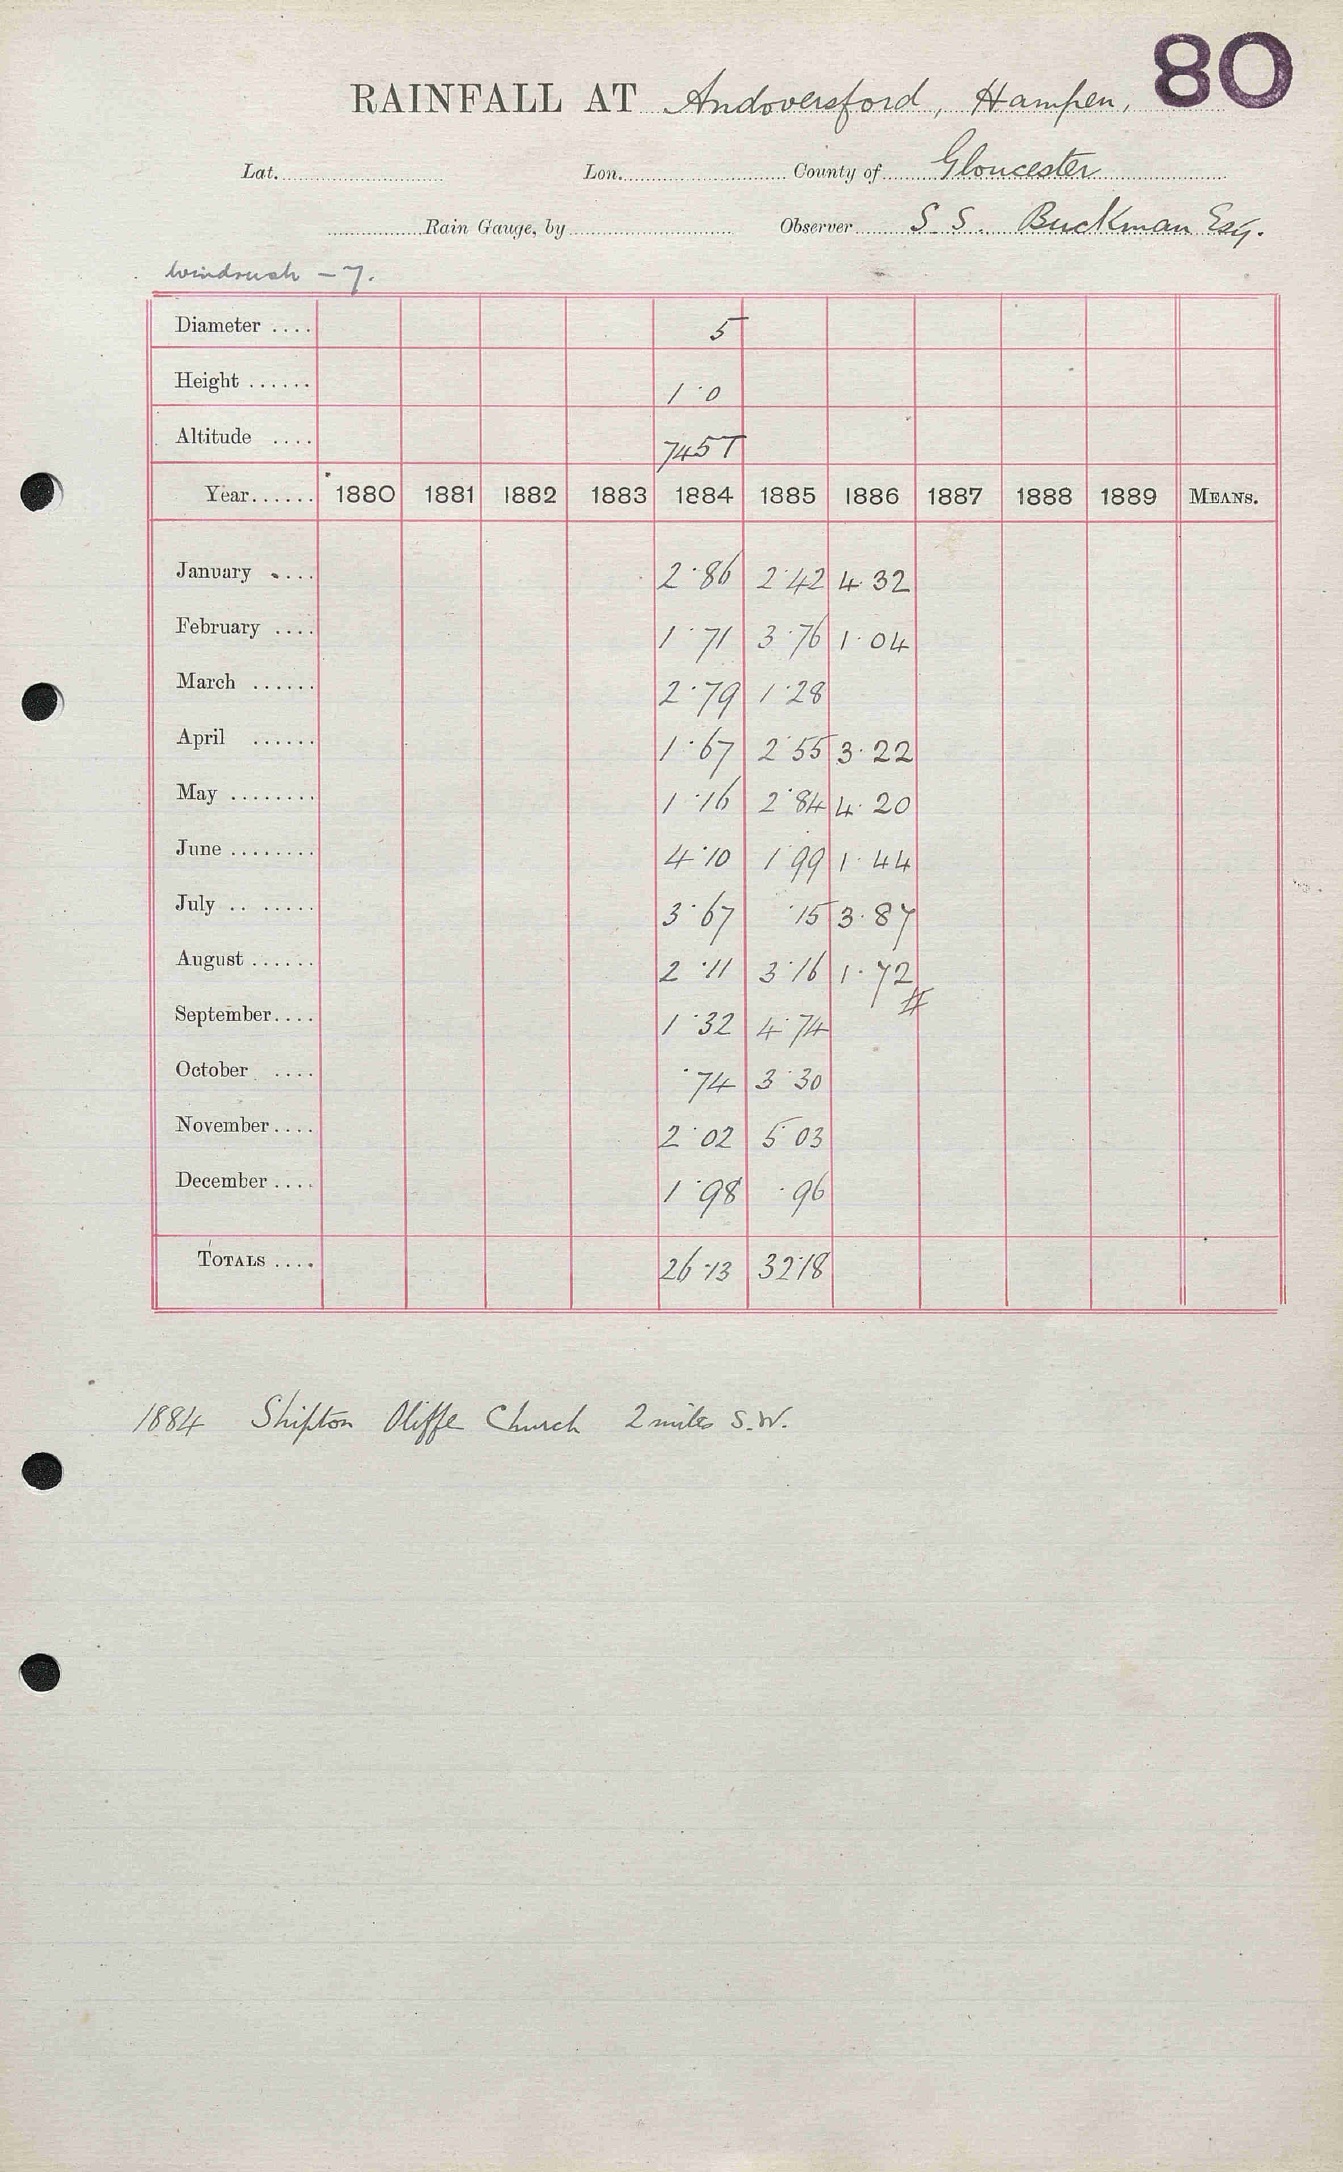 80
RAINFALL AT Andoversford, Hampen,
Lat. Lon. County of Gloucester
Rain Gauge, by Observer S. S. Buckman Esq.
Windrush - 7.
Diameter .... 5
Height ...... 1·0
Altitude .... 745T
Year...... 1880 1881 1882 1883 1884 1885 1886 1887 1888 1889 MEANS.
January .... 2·86 2·42 4·32
February .... 1·71 3·76 1·04
March ...... 2·79 1·28
April ...... 1·67 2·55 3·22
May ........ 1·16 2·84 4·20
June ........ 4·10 1·99 1·44
July .. ..... 3·67 ·15 3·87
August ...... 2·11 3·16 1·72 #
September.... 1·32 4·74
October .... ·74 3·30
November.... 2·02 5·03
December .... 1·98 ·96
TOTALS .... 26·13 32·18
1884 Shipton Oliffe Church 2 miles S.W.